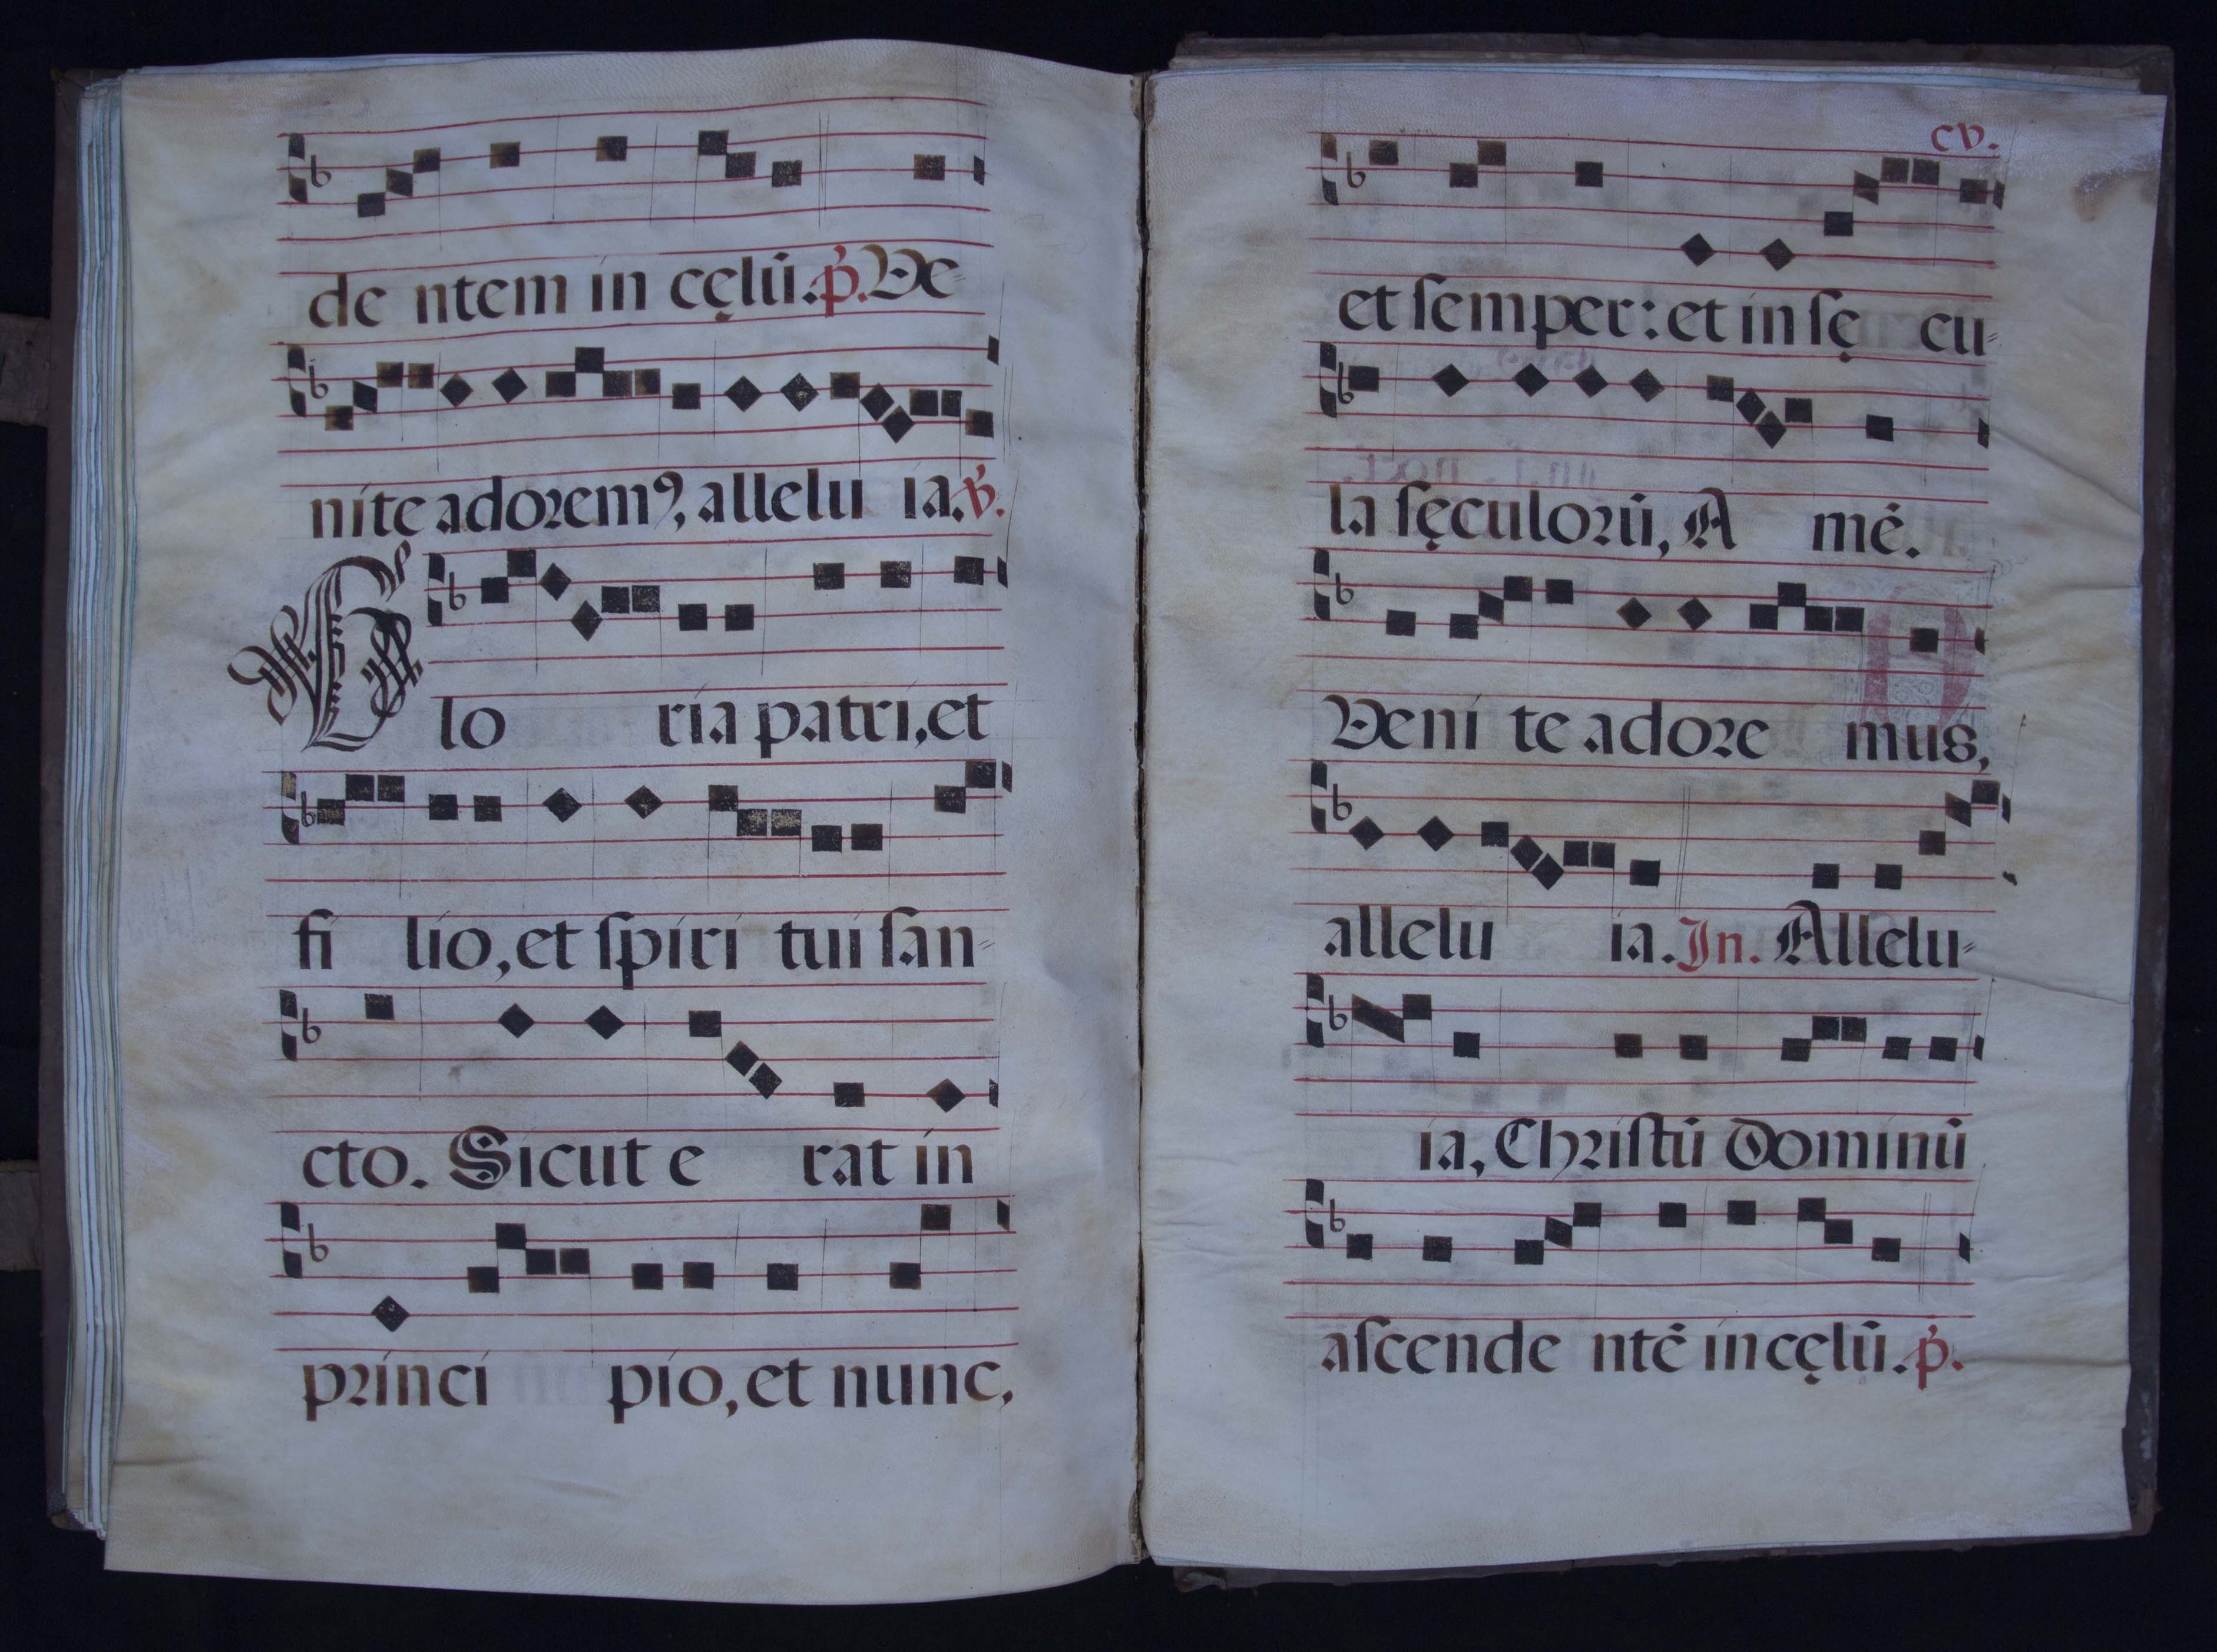 de ntem in cęlū. p̄. Ve-
nite adorem⁹, allelu ia. v̄.
Glo ria patri, et
fi lio, et ſpiri tui ſan-
cto. Sicut e rat in
princi pio, et nunc,
cv.
et ſemper: et in ſę cu-
la ſęculoꝛū, A mē.
Veni te adoꝛe mus,
allelu ia. In. Allelu-
ia, Chꝛiſtū Dominū
aſcende ntē in cęlū. p̄.